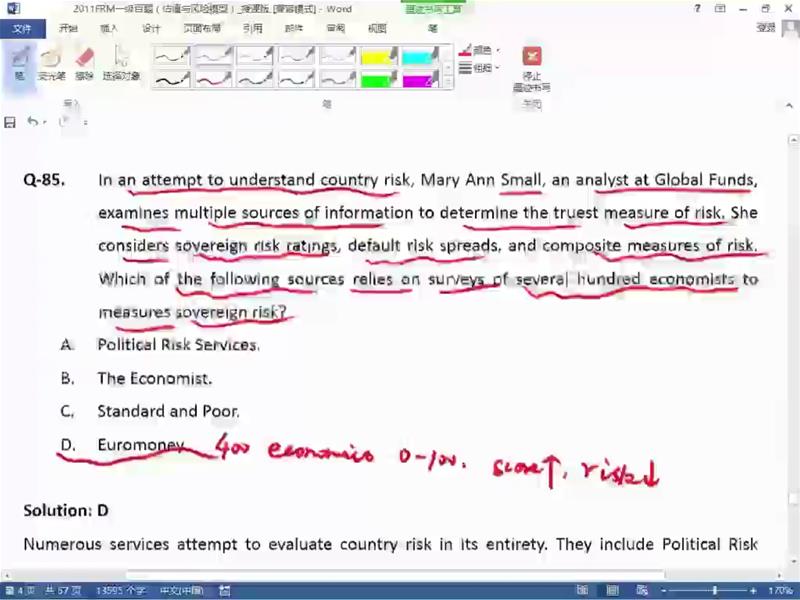 2011FRM一级百题（估值与风险模型）_授课版 [兼容模式] - Word
墨迹书写工具
文件 开始 插入 设计 页面布局 引用 邮件 审阅 视图 笔 登录
笔 荧光笔 橡皮擦 选择对象
颜色
粗细
停止
墨迹书写
写入 笔 关闭
Q-85. In an attempt to understand country risk, Mary Ann Small, an analyst at Global Funds,
examines multiple sources of information to determine the truest measure of risk. She
considers sovereign risk ratings, default risk spreads, and composite measures of risk.
Which of the following sources relies on surveys of several hundred economists to
measures sovereign risk?
A. Political Risk Services.
B. The Economist.
C. Standard and Poor.
D. Euromoney 400 economics 0-100. score↑. risk↓
Solution: D
Numerous services attempt to evaluate country risk in its entirety. They include Political Risk
第 4 页 共 57 页 13595 个字 中文(中国) 170%